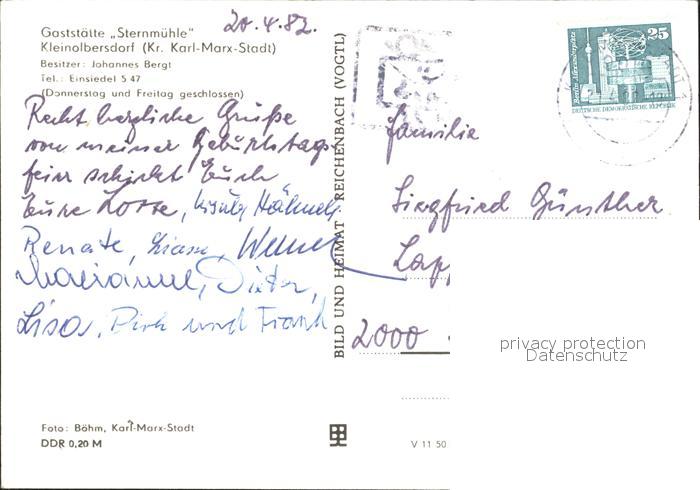 20.4.82.
Gaststätte „Sternmühle"
Kleinolbersdorf (Kr. Karl-Marx-Stadt)
Besitzer: Johannes Bergt
Tel.: Einsiedel 5 47
(Donnerstag und Freitag geschlossen)
Recht herzliche Grüße
von meiner Geburtstags-
feier schickt Euch
Eure Lotte,
Renate, Werner
Marianne, Dieter,
Lisa, Dirk und Frank
Foto: Böhm, Karl-Marx-Stadt
DDR 0,20 M
BILD UND HEIMAT REICHENBACH (VOGTL)
25
Berlin, Alexanderplatz
DEUTSCHE DEMOKRATISCHE REPUBLIK
Familie
Siegfried Günther
2000
V 11 50
privacy protection
Datenschutz